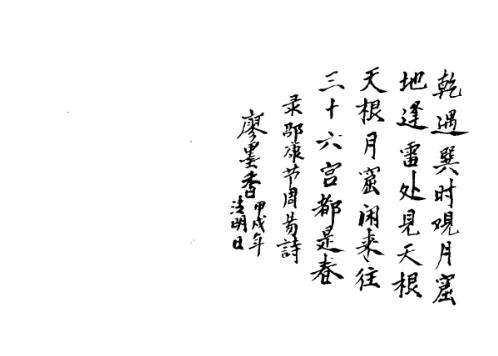 乾遇巽时观月窟
地逢雷处见天根
天根月窟闲来往
三十六宫都是春
录邵康节周易詩
廖墨香
甲戌年
清明日